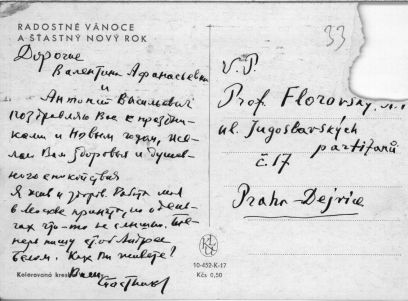 RADOSTNÉ VÁNOCE
A ŠŤASTNÝ NOVÝ ROK
Дорогие
Валентина Афанасьевна
и
Антоний Васильевич
поздравляю Вас с праздни-
ками и Новым годом, же-
лаю Вам здоровья и душев-
ного спокойствия
Я жив и здоров. Работа моя
в Москве принята, но о день-
гах что-то не слышно. Те-
перь пишу об Андрее
Белом. Как Вы живете?
Ваш
33
V.P.
Prof. Florovsky, A.
ul. Jugoslavských
partizánů
č. 17
Praha - Dejvice
10-452-K-17
Kčs 0,50
Kolorovaná